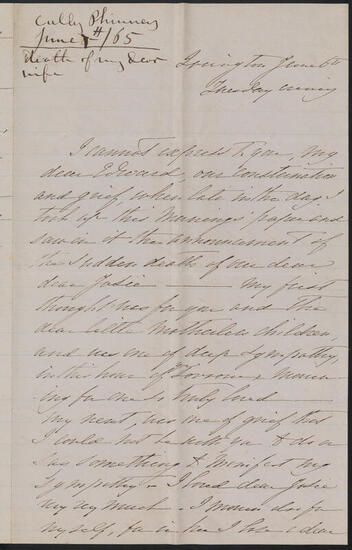 Cully Phinney
June 7th/65
death of my dear
wife
Irvington June 6th
Tuesday evening
I cannot express to you, my
dear Edward, our consternation
and grief, when late in the day, I
took up this morning's paper and
saw in it the announcement of
the sudden death of our dear
dear Josie — My first
thought was for you and the
dear little motherless children
and was one of deep sympathy,
in this hour of sorrow & mourn-
ing for one so truly loved
My next, was one of grief that
I could not be with you & do or
say something to manifest my
sympathy — I loved dear Josie
very very much — I mourn also for
myself, for in her I lose a dear